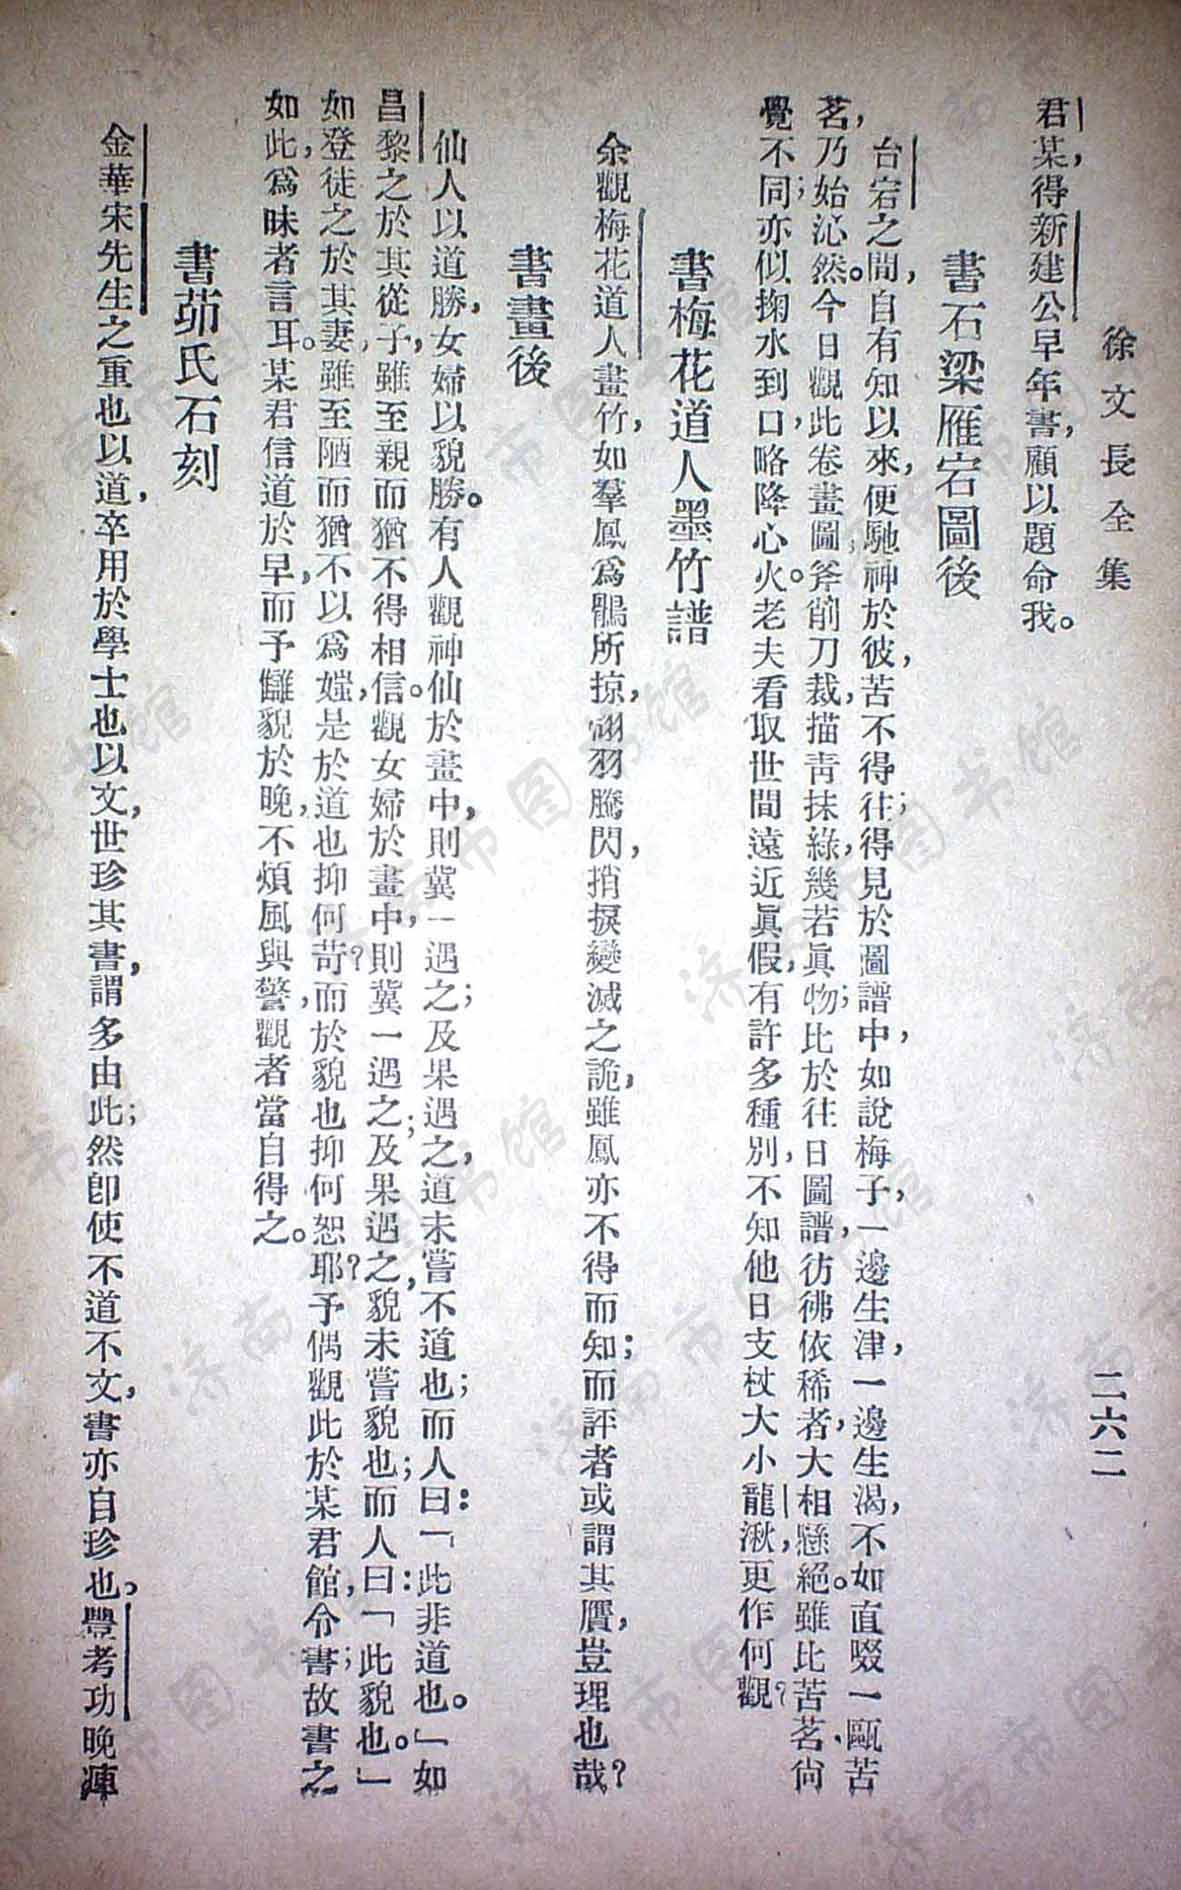 徐文長全集
二六二
君某，得新建公早年書，顧以題命我。
書石梁雁宕圖後
台宕之間，自有知以來，便馳神於彼，苦不得往；得見於圖譜中，如說梅子，一邊生津，一邊生渴，不如直啜一甌苦
茗，乃始沁然。今日觀此卷畫圖，斧削刀裁，描青抹綠，幾若眞物；比於往日圖譜，彷彿依稀者，大相懸絕。雖比苦茗，尙
覺不同；亦似掬水到口，略降心火。老夫看取世間遠近眞假，有許多種別，不知他日支杖大小龍湫，更作何觀？
書梅花道人墨竹譜
余觀梅花道人畫竹，如羣鳳爲鶻所掠，翩羽騰閃，捎捩變滅之詭，雖鳳亦不得而知；而評者或謂其贋，豈理也哉？
書畫後
仙人以道勝，女婦以貌勝。有人觀神仙於畫中，則冀一遇之；及果遇之，道未嘗不道也；而人曰：「此非道也。」如
昌黎之於其從子，雖至親而猶不得相信。觀女婦於畫中，則冀一遇之；及果遇之，貌未嘗貌也；而人曰：「此貌也。」
如登徒之於其妻，雖至陋而猶不以爲媸，是於道也抑何苛？而於貌也抑何恕耶？予偶觀此於某君館，令書；故書之
如此，爲昧者言耳。某君信道於早，而予讎貌於晚，不煩風與警，觀者當自得之。
書茆氏石刻
金華宋先生之重也以道，卒用於學士也以文，世珍其書，謂多由此；然卽使不道不文，書亦自珍也。豐考功晚痺